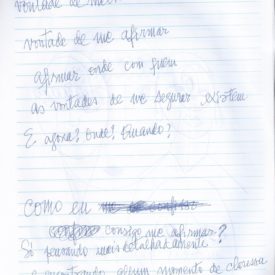 vontade de
vontade de me afirmar
afirmar onde com quem
as vontades de me segurar existem
E agora? Onde? Quando?
Como eu
consigo me afirmar?
Só pensando mais detalhadamente.
e encontrando algum momento de